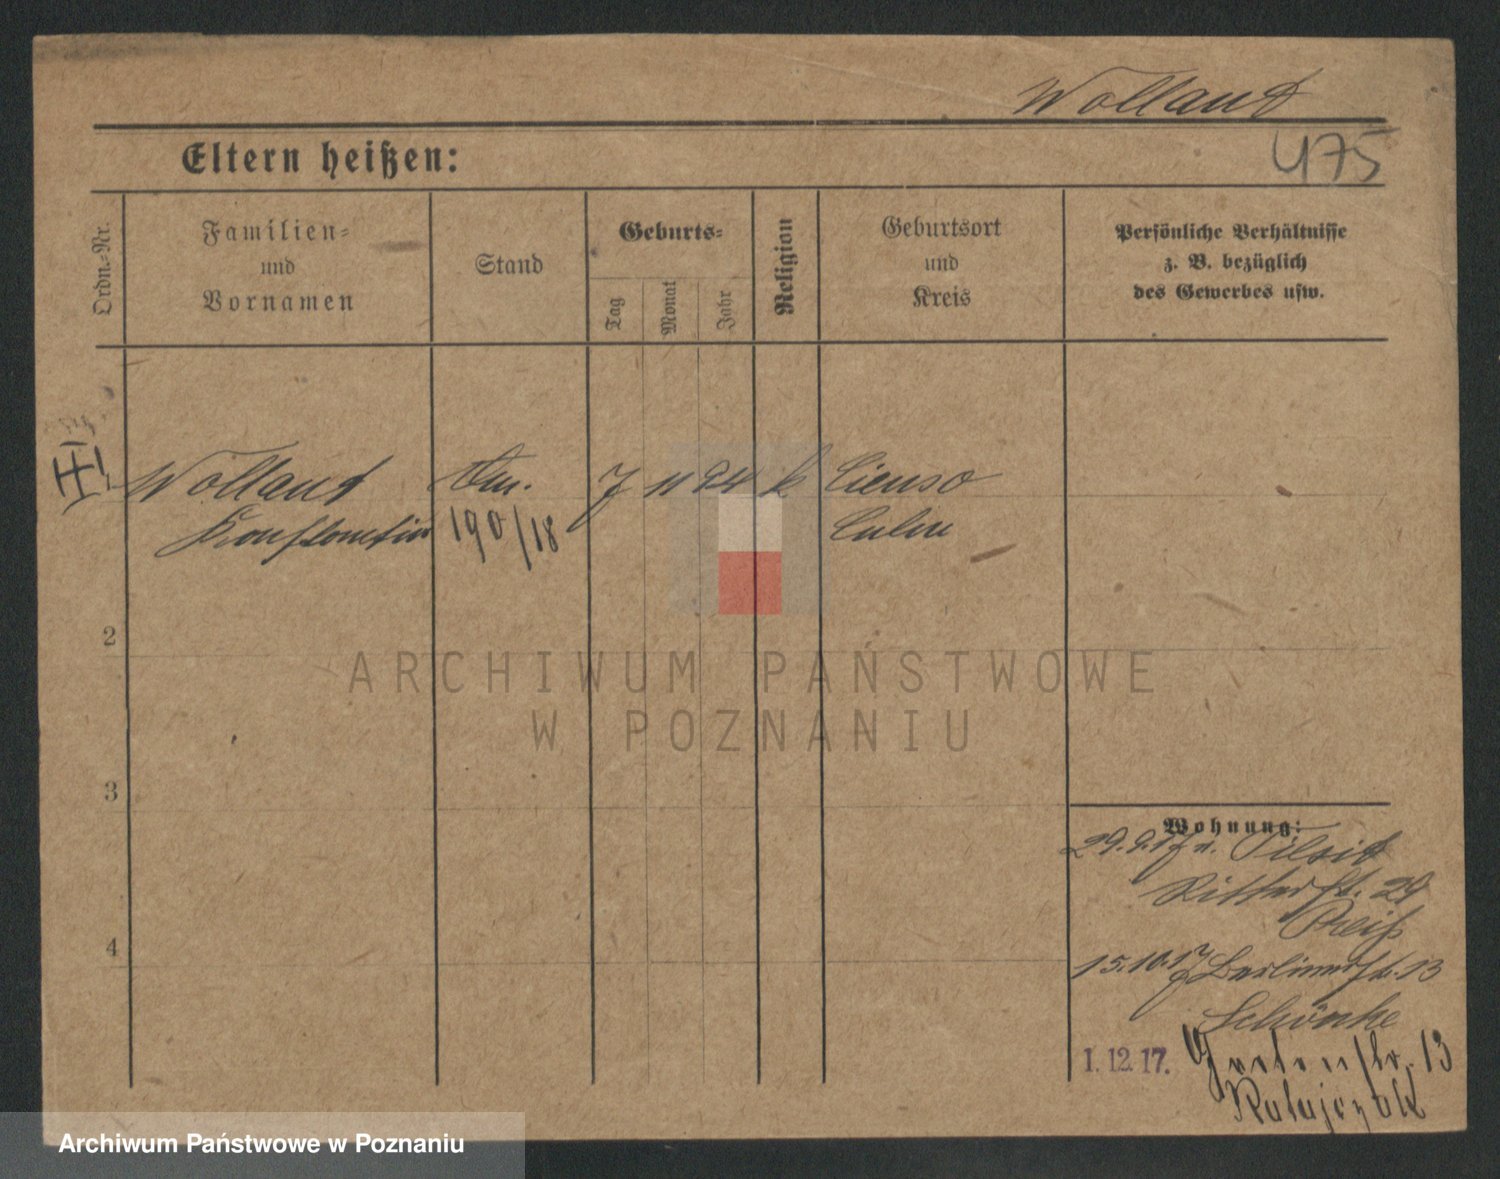 Wollant
475
Eltern heißen:
Ordn.-Nr.
Familien-
und
Vornamen
Stand
Geburts-
Tag
Monat
Jahr
Religion
Geburtsort
und
Kreis
Persönliche Verhältnisse
z. B. bezüglich
des Gewerbes usw.
Wollant
7 11 94 k
Konstantin
190/18
Culm
2
ARCHIWUM PAŃSTWOWE
W POZNANIU
3
Wohnung:
29.9.17 v. Tilsit
Ritterstr. 29
Preiß
4
15.10.17 Berlinerstr. 13
Schönke
1. 12. 17.
13
Ratajczak
Archiwum Państwowe w Poznaniu